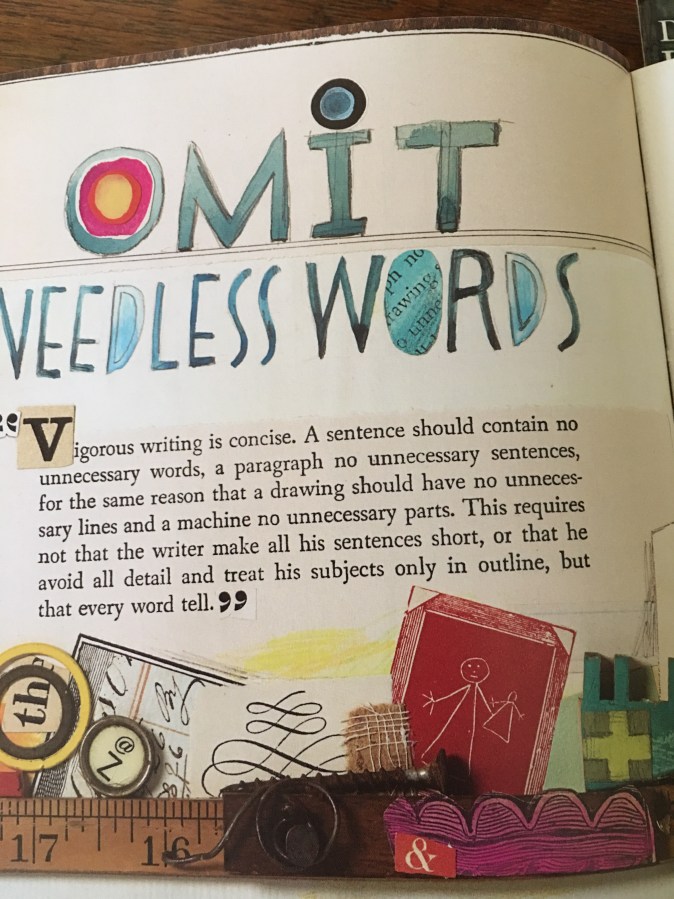 OMiT
NEEDLESS WORDS
ph no
rawing,
o unne
“Vigorous writing is concise. A sentence should contain no
unnecessary words, a paragraph no unnecessary sentences,
for the same reason that a drawing should have no unneces-
sary lines and a machine no unnecessary parts. This requires
not that the writer make all his sentences short, or that he
avoid all detail and treat his subjects only in outline, but
that every word tell.”
th
@
N
17 16
&